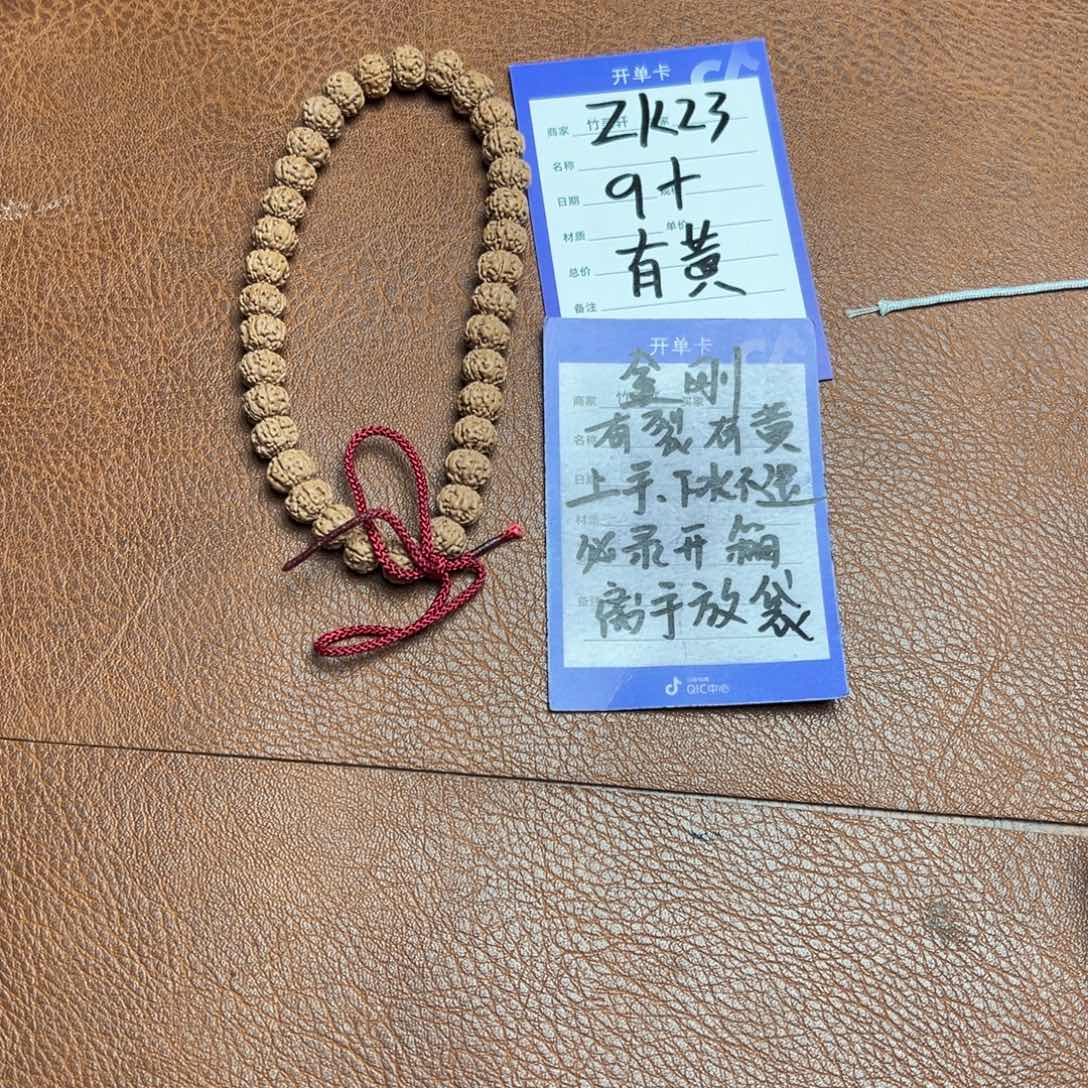 开单卡
商家 竹 轩 家
ZK23
名称
9+
日期
材质 单价
有黄
总价
备注
开单卡
金刚
商家 竹
有裂有黄
名称
上手、下水不退
必录开箱
材质
离手放袋
QIC中心